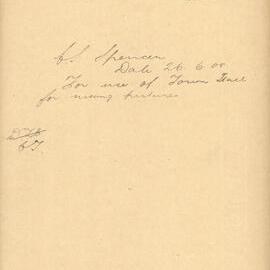 Spencer
Date 26.6.08
For use of Town Hall
for moving pictures